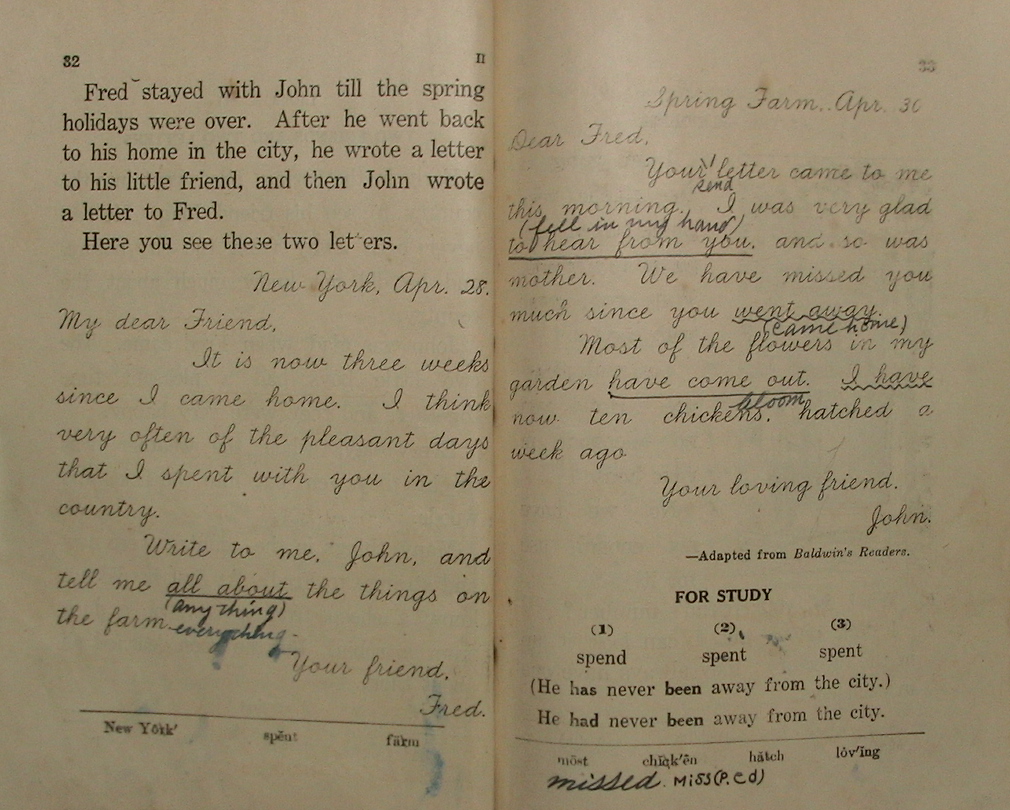 32
II
Fred stayed with John till the spring
holidays were over. After he went back
to his home in the city, he wrote a letter
to his little friend, and then John wrote
a letter to Fred.
Here you see these two letters.
New York, Apr. 28.
My dear Friend,
It is now three weeks
since I came home. I think
very often of the pleasant days
that I spent with you in the
country.
Write to me, John, and
tell me all about the things on
(anything)
the farm.
everything.
Your friend,
Fred.
New Yôrk' spĕnt färm
33
Spring Farm, Apr. 30
Dear Fred,
Your letter came to me
send
this morning. I was very glad
(fell in my hand)
to hear from you, and so was
mother. We have missed you
much since you went away.
(came home)
Most of the flowers in my
garden have come out. I have
bloom
now ten chickens, hatched a
week ago
Your loving friend,
John.
—Adapted from Baldwin's Readers.
FOR STUDY
(1) (2) (3)
spend spent spent
(He has never been away from the city.)
He had never been away from the city.
mōst chĭck'ĕn hătch lòv'ĭng
missed. Miss(P. ed)